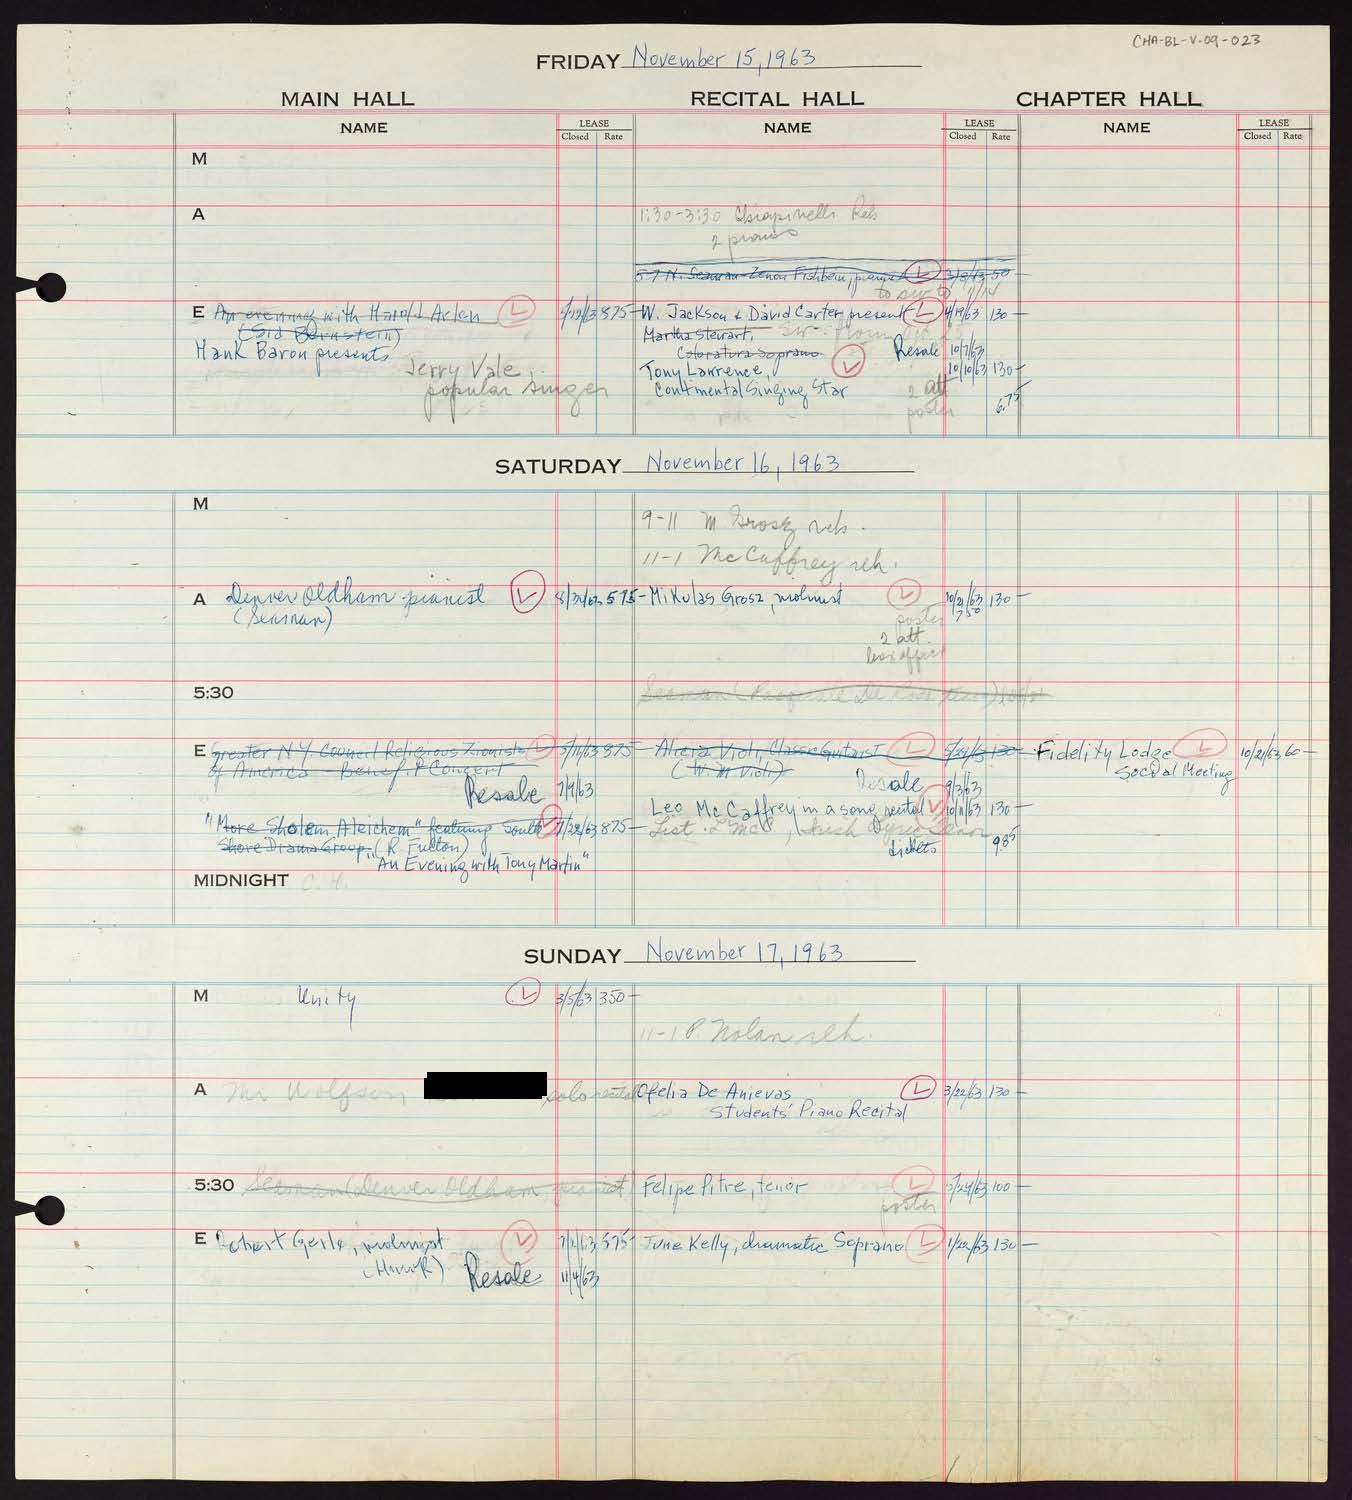 CHA-BL-V-09-023
FRIDAY November 15, 1963
MAIN HALL RECITAL HALL CHAPTER HALL
NAME LEASE Closed Rate NAME LEASE Closed Rate NAME LEASE Closed Rate
M
A 1:30-3:30 Reh
2 pianos
5-7 N. Seaman - Zenon Fishbein, pianist L 3/8/63 50-
to 7/14
E An evening with Harold Arlen L 875- W. Jackson & David Carter present L 4/19/63 130-
(Sid Bernstein) Martha Stewart,
Hank Baron presents Coloratura Soprano Resale 10/7/63
Jerry Vale, Tony Lawrence, L 10/10/63 130-
popular singer Continental Singing Star 2 att
poster 6.75
SATURDAY November 16, 1963
M
9-11 M Grosz reh.
11-1 McCaffrey reh.
A Denver Oldham pianist L 575- Mikulas Grosz, violinist L 10/21/63 130-
(Seaman) poster 7.50
2 att.
box office
5:30 Seaman
E Greater N.Y. Council Religious Zionists L 875- Alicia Violi, Classic Guitarist L 130- Fidelity Lodge L 10/21/63 60-
of America - Benefit Concert (W. M Violi) Social Meeting
Resale 7/9/63 Resale 9/3/63
"More Sholem Aleichem" featuring South L 7/22/63 875- Leo McCaffrey in a song recital L 10/11/63 130-
Shore Drama Group, (R. Fulton) Irish Lyric Tenor
"An Evening with Tony Martin" tickets 9.85
MIDNIGHT C.H.
SUNDAY November 17, 1963
M Unity L 3/5/63 350-
11-1 P. Nolan reh.
A Mr Wolfson, solo recital Ofelia De Anievas L 3/22/63 130-
Students' Piano Recital
5:30 Seaman (Denver Oldham, pianist) Felipe Pitre, tenor L 100-
poster
E Robert Gerle, violinist L 575- June Kelly, dramatic Soprano L 1/22/63 130-
Resale 11/4/63